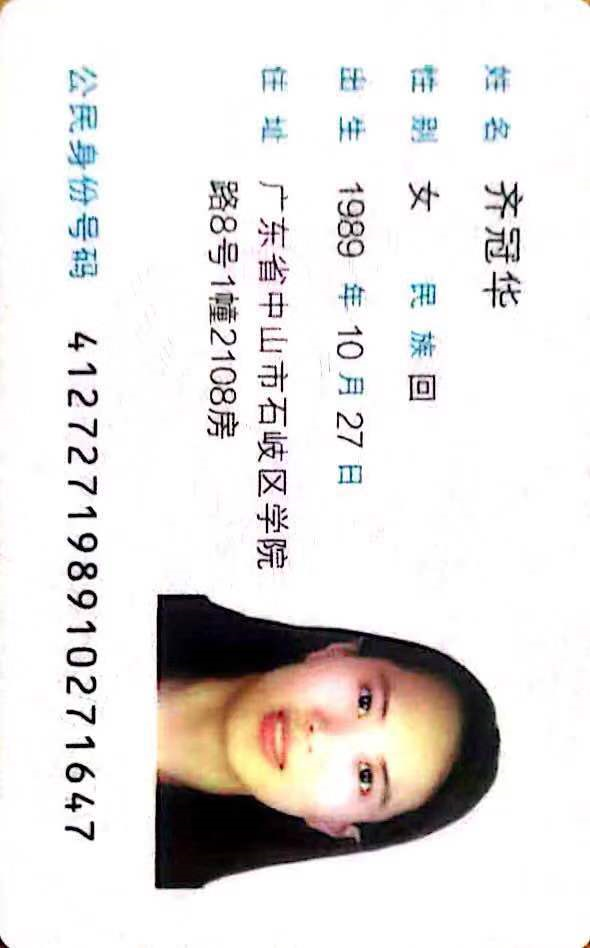 姓名 齐冠华
性别 女 民族 回
出生 1989 年 10 月 27 日
住址 广东省中山市石岐区学院
路8号1幢2108房
公民身份号码 412727198910271647